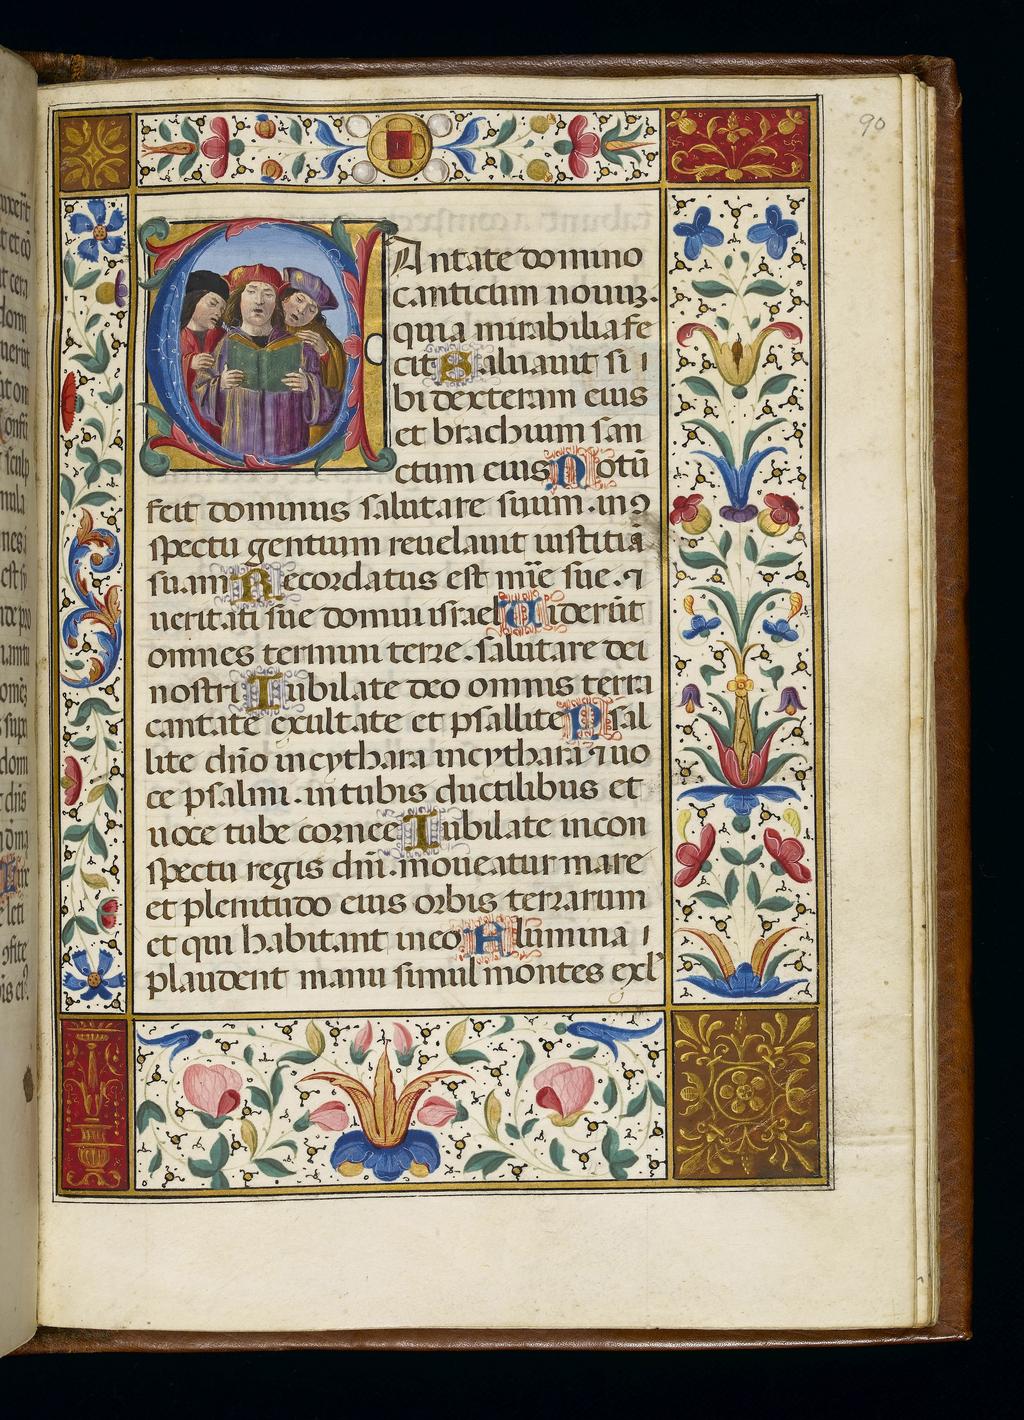 90
CAntate domino
canticum nouuȝ.
quia mirabilia fe
cit Saluauit si i
bi dextera eius
et brachium san
ctum eius Notū
fecit dominus salutare suum. in ꝯ
spectu gentium reuelauit iustitiā
suam Recordatus est mīe sue. ⁊
ueritati sūe domui israel Uiderūt
omnes termini terre. salutare dei
nostri Iubilate deo omnis terra
cantate exultate et psallite Psal
lite dn̄o in cythara in cythara ⁊ uo
ce psalmi. in tubis ductilibus et
uoce tube cornee Iubilate in con
spectu regis dn̄i. moueatur mare
et plenitudo eius orbis terrarum
et qui habitant in eo Flumina i
plaudent manu simul montes exl'